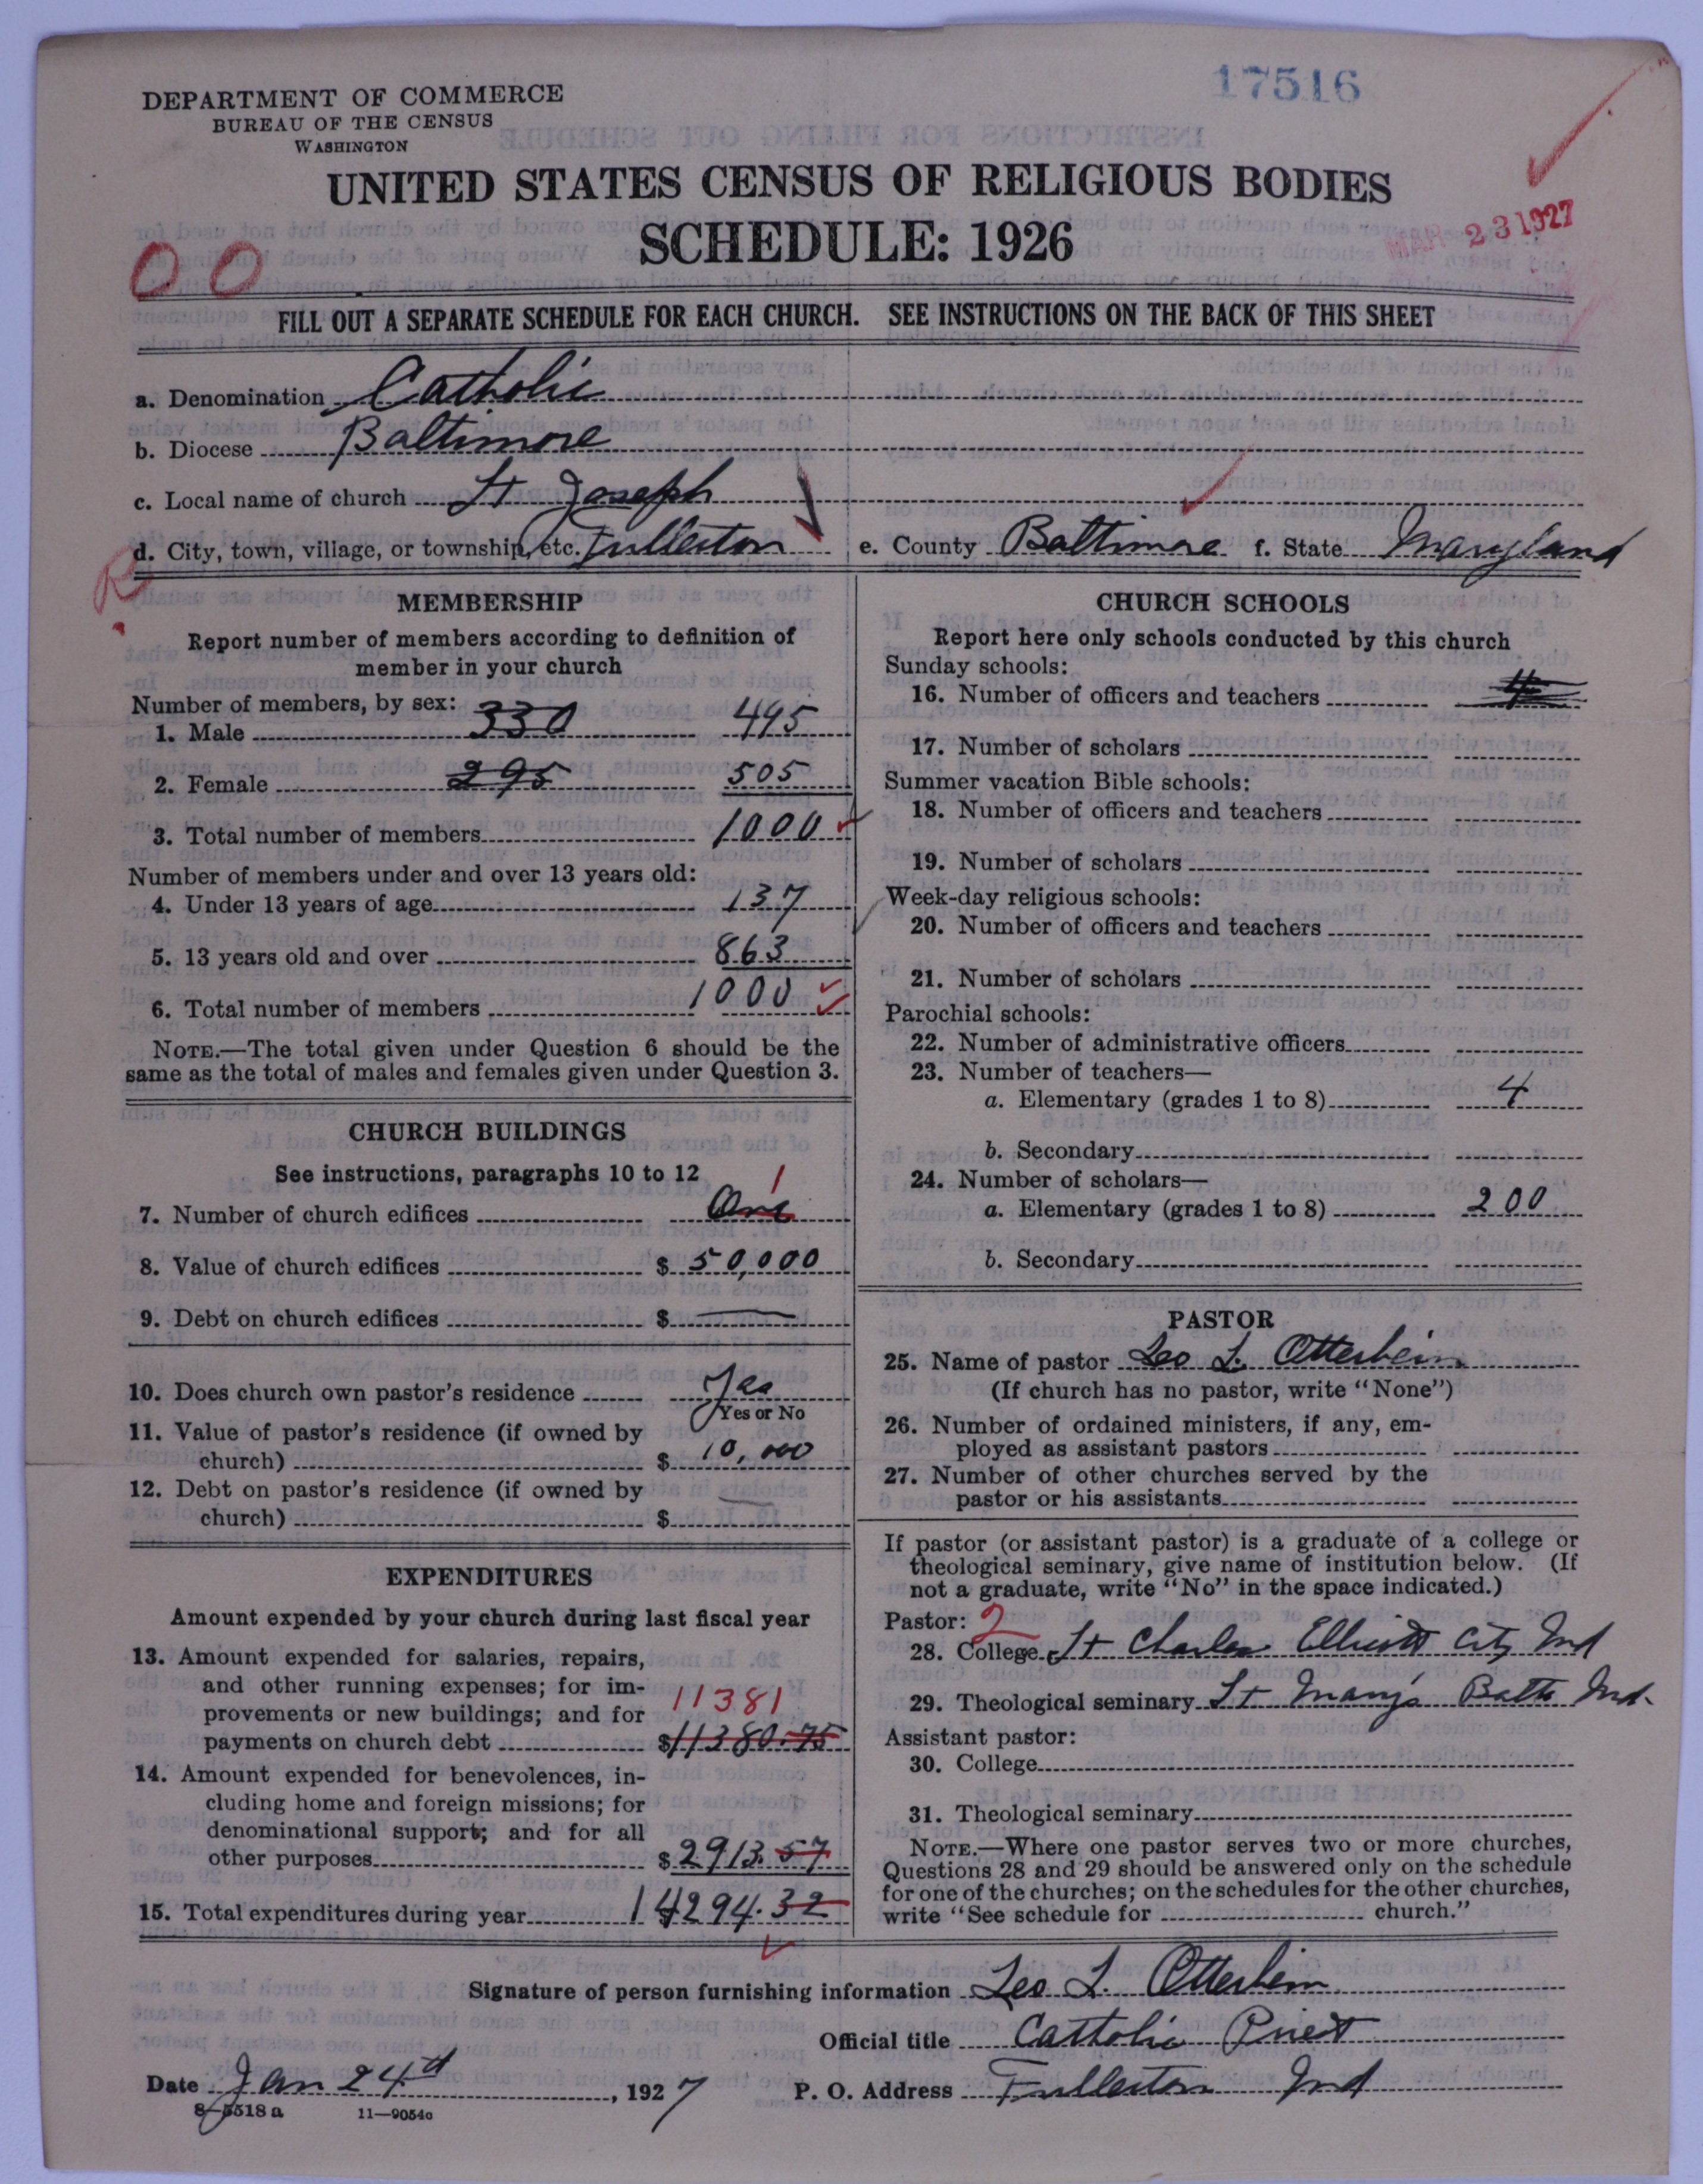 17516
DEPARTMENT OF COMMERCE
BUREAU OF THE CENSUS
WASHINGTON
UNITED STATES CENSUS OF RELIGIOUS BODIES
SCHEDULE: 1926
MAR 23 1927
00
FILL OUT A SEPARATE SCHEDULE FOR EACH CHURCH. SEE INSTRUCTIONS ON THE BACK OF THIS SHEET
a. Denomination Catholic
b. Diocese Baltimore
c. Local name of church St Joseph
d. City, town, village, or township, etc. Fullerton e. County Baltimore f. State Maryland
R
MEMBERSHIP
Report number of members according to definition of
member in your church
Number of members, by sex:
1. Male 330 495
2. Female 295 505
3. Total number of members 1000
Number of members under and over 13 years old:
4. Under 13 years of age 137
5. 13 years old and over 863
6. Total number of members 1000
NOTE.—The total given under Question 6 should be the
same as the total of males and females given under Question 3.
CHURCH BUILDINGS
See instructions, paragraphs 10 to 12
1
7. Number of church edifices One
8. Value of church edifices $ 50,000
9. Debt on church edifices $ —
10. Does church own pastor's residence Yes
Yes or No
11. Value of pastor's residence (if owned by
church) $ 10,000
12. Debt on pastor's residence (if owned by
church) $ —
EXPENDITURES
Amount expended by your church during last fiscal year
13. Amount expended for salaries, repairs,
and other running expenses; for im-
provements or new buildings; and for 11381
payments on church debt $11380.75
14. Amount expended for benevolences, in-
cluding home and foreign missions; for
denominational support; and for all
other purposes $2913.57
15. Total expenditures during year $14294.32
CHURCH SCHOOLS
Report here only schools conducted by this church
Sunday schools:
16. Number of officers and teachers 4
17. Number of scholars
Summer vacation Bible schools:
18. Number of officers and teachers
19. Number of scholars
Week-day religious schools:
20. Number of officers and teachers
21. Number of scholars
Parochial schools:
22. Number of administrative officers
23. Number of teachers—
a. Elementary (grades 1 to 8) 4
b. Secondary
24. Number of scholars—
a. Elementary (grades 1 to 8) 200
b. Secondary
PASTOR
25. Name of pastor Leo L. Otterbein
(If church has no pastor, write "None")
26. Number of ordained ministers, if any, em-
ployed as assistant pastors
27. Number of other churches served by the
pastor or his assistants
If pastor (or assistant pastor) is a graduate of a college or
theological seminary, give name of institution below. (If
not a graduate, write "No" in the space indicated.)
Pastor: 2
28. College St Charles Ellicott City Md
29. Theological seminary St Mary's Balto Md.
Assistant pastor:
30. College
31. Theological seminary
NOTE.—Where one pastor serves two or more churches,
Questions 28 and 29 should be answered only on the schedule
for one of the churches; on the schedules for the other churches,
write "See schedule for church."
Signature of person furnishing information Leo L. Otterbein
Official title Catholic Priest
Date Jan 24d, 1927 P. O. Address Fullerton Md
8-5518 a 11—9054a